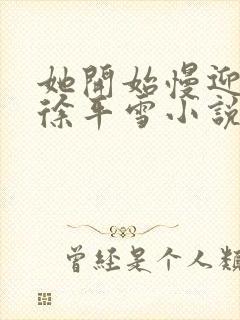 她開始慢迎
徐平雪小說
曾經是个人類